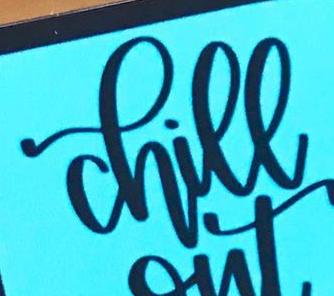 chill
out